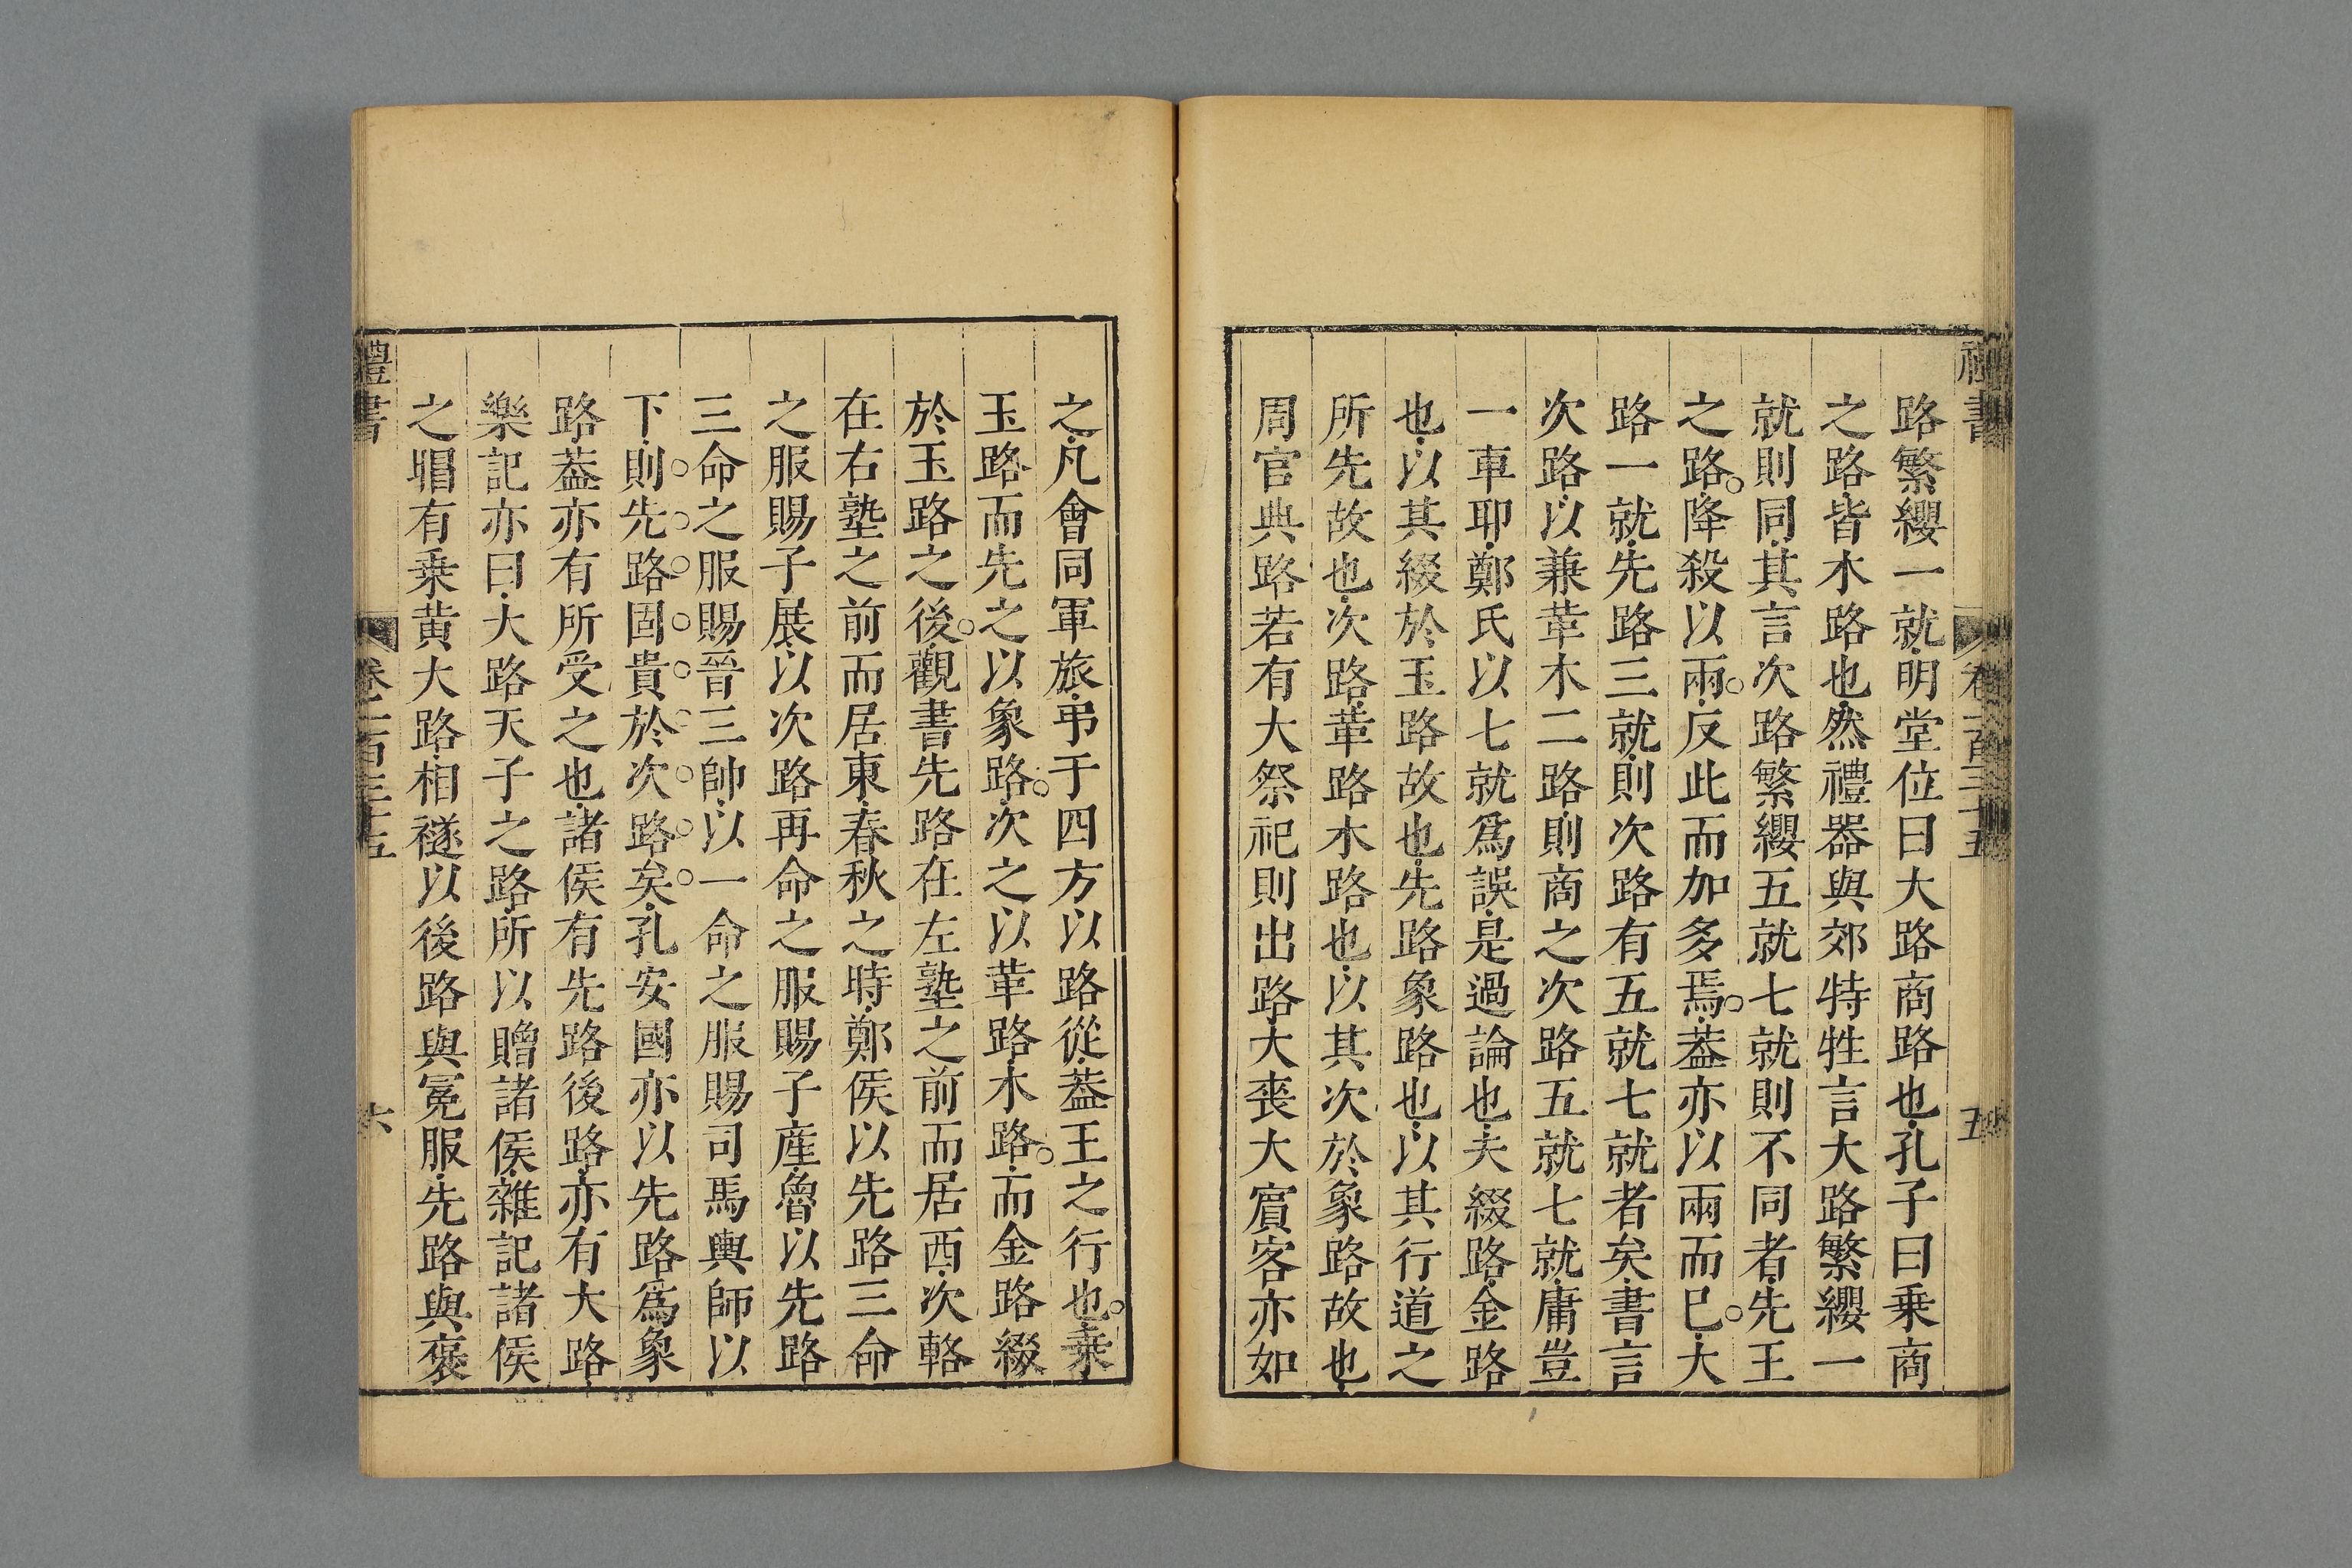 禮書 卷一百三十五 五
路繁纓一就明堂位曰大路商路也孔子曰乗商
之路皆木路也然禮器與郊特牲言大路繁纓一
就則同其言次路繁纓五就七就則不同者先王
之路降殺以兩反此而加多焉葢亦以兩而巳大
路一就先路三就則次路有五就七就者矣書言
次路以兼革木二路則商之次路五就七就庸豈
一車耶鄭氏以七就爲誤是過論也夫綴路金路
也以其綴於玉路故也先路象路也以其行道之
所先故也次路革路木路也以其次於象路故也
周官典路若有大祭祀則出路大喪大賔客亦如
之凡會同軍旅弔于四方以路從葢王之行也乗
玉路而先之以象路次之以革路木路而金路綴
於玉路之後觀書先路在左塾之前而居西次輅
在右塾之前而居東春秋之時鄭侯以先路三命
之服賜子展以次路再命之服賜子產魯以先路
三命之服賜晉三帥以一命之服賜司馬輿師以
下則先路固貴於次路矣孔安國亦以先路爲象
路葢亦有所受之也諸侯有先路後路亦有大路
樂記亦曰大路天子之路所以贈諸侯雜記諸侯
之賵有乗黄大路相襚以後路與冕服先路與褒
禮書 卷一百三十五 六